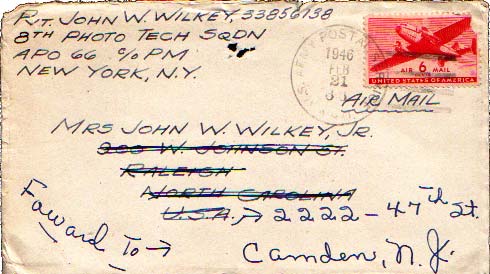 Pvt. JOHN W. WILKEY, 33856138
8TH PHOTO TECH SQDN
APO 66 C/O PM
NEW YORK, N.Y.
U.S. ARMY POSTAL
1946
FEB
21
AIR 6 MAIL
UNITED STATES OF AMERICA
AIR MAIL
MRS JOHN W. WILKEY, JR.
300 W. JOHNSON ST.
RALEIGH
NORTH CAROLINA
U.S.A. → 2222 - 47th St.
Foward To → Camden, N.J.